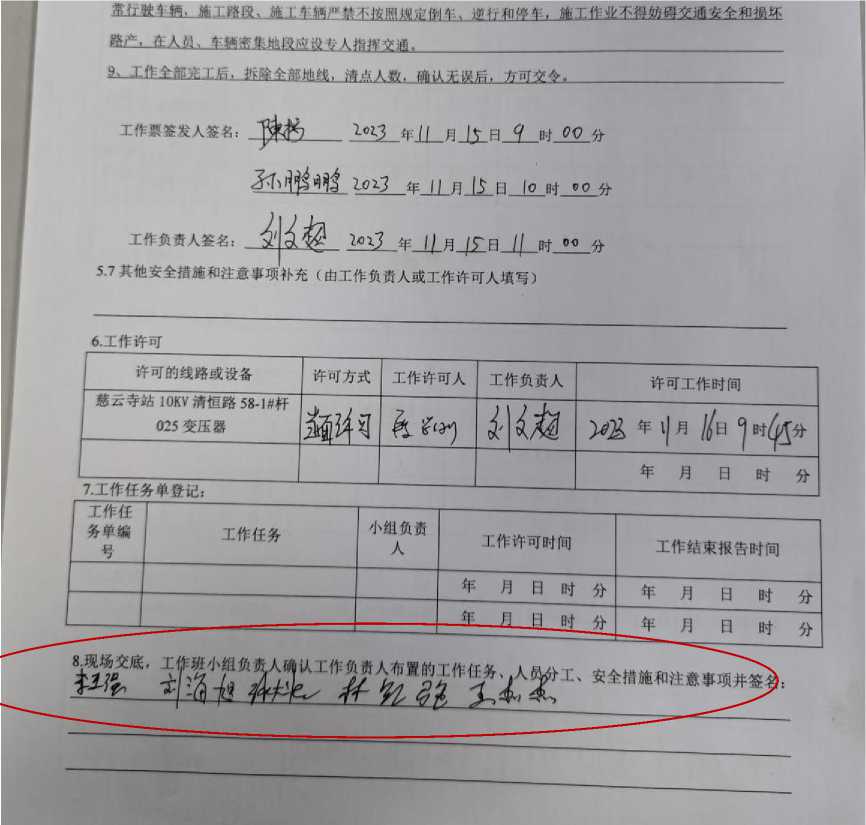 常行驶车辆，施工路段、施工车辆严禁不按照规定倒车、逆行和停车，施工作业不得妨碍交通安全和损坏
路产，在人员、车辆密集地段应设专人指挥交通。
9、工作全部完工后，拆除全部地线，清点人数，确认无误后，方可交令。
工作票签发人签名： 陳杨 2023 年 11 月 15 日 9 时 00 分
孙鹏鹏 2023 年 11 月 15 日 10 时 00 分
工作负责人签名： 刘文超 2023 年 11 月 15 日 11 时 00 分
5.7 其他安全措施和注意事项补充（由工作负责人或工作许可人填写）
6.工作许可
许可的线路或设备 许可方式 工作许可人 工作负责人 许可工作时间
慈云寺站 10KV 清恒路 58-1#杆
025 变压器 当面许可 刘文超 2023 年 11 月 16 日 9 时 45 分
年 月 日 时 分
7.工作任务单登记：
工作任
务单编
号 工作任务 小组负责
人 工作许可时间 工作结束报告时间
年 月 日 时 分 年 月 日 时 分
年 月 日 时 分 年 月 日 时 分
8.现场交底，工作班小组负责人确认工作负责人布置的工作任务、人员分工、安全措施和注意事项并签名：
李玉强 刘海旭 林 王杰杰